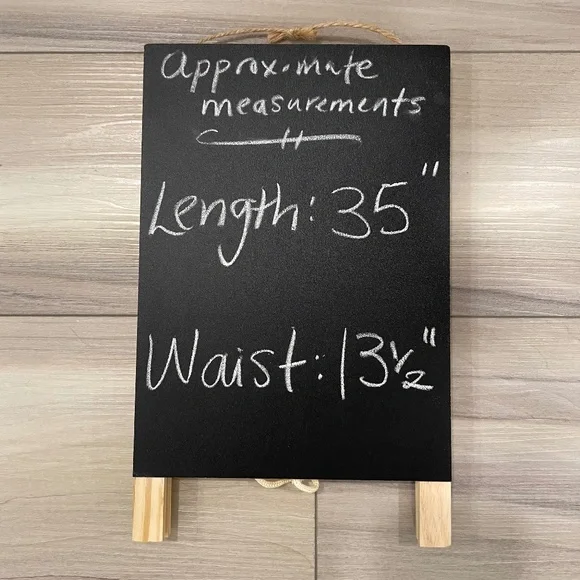 Approximate
measurements
Length: 35"
Waist: 13½"